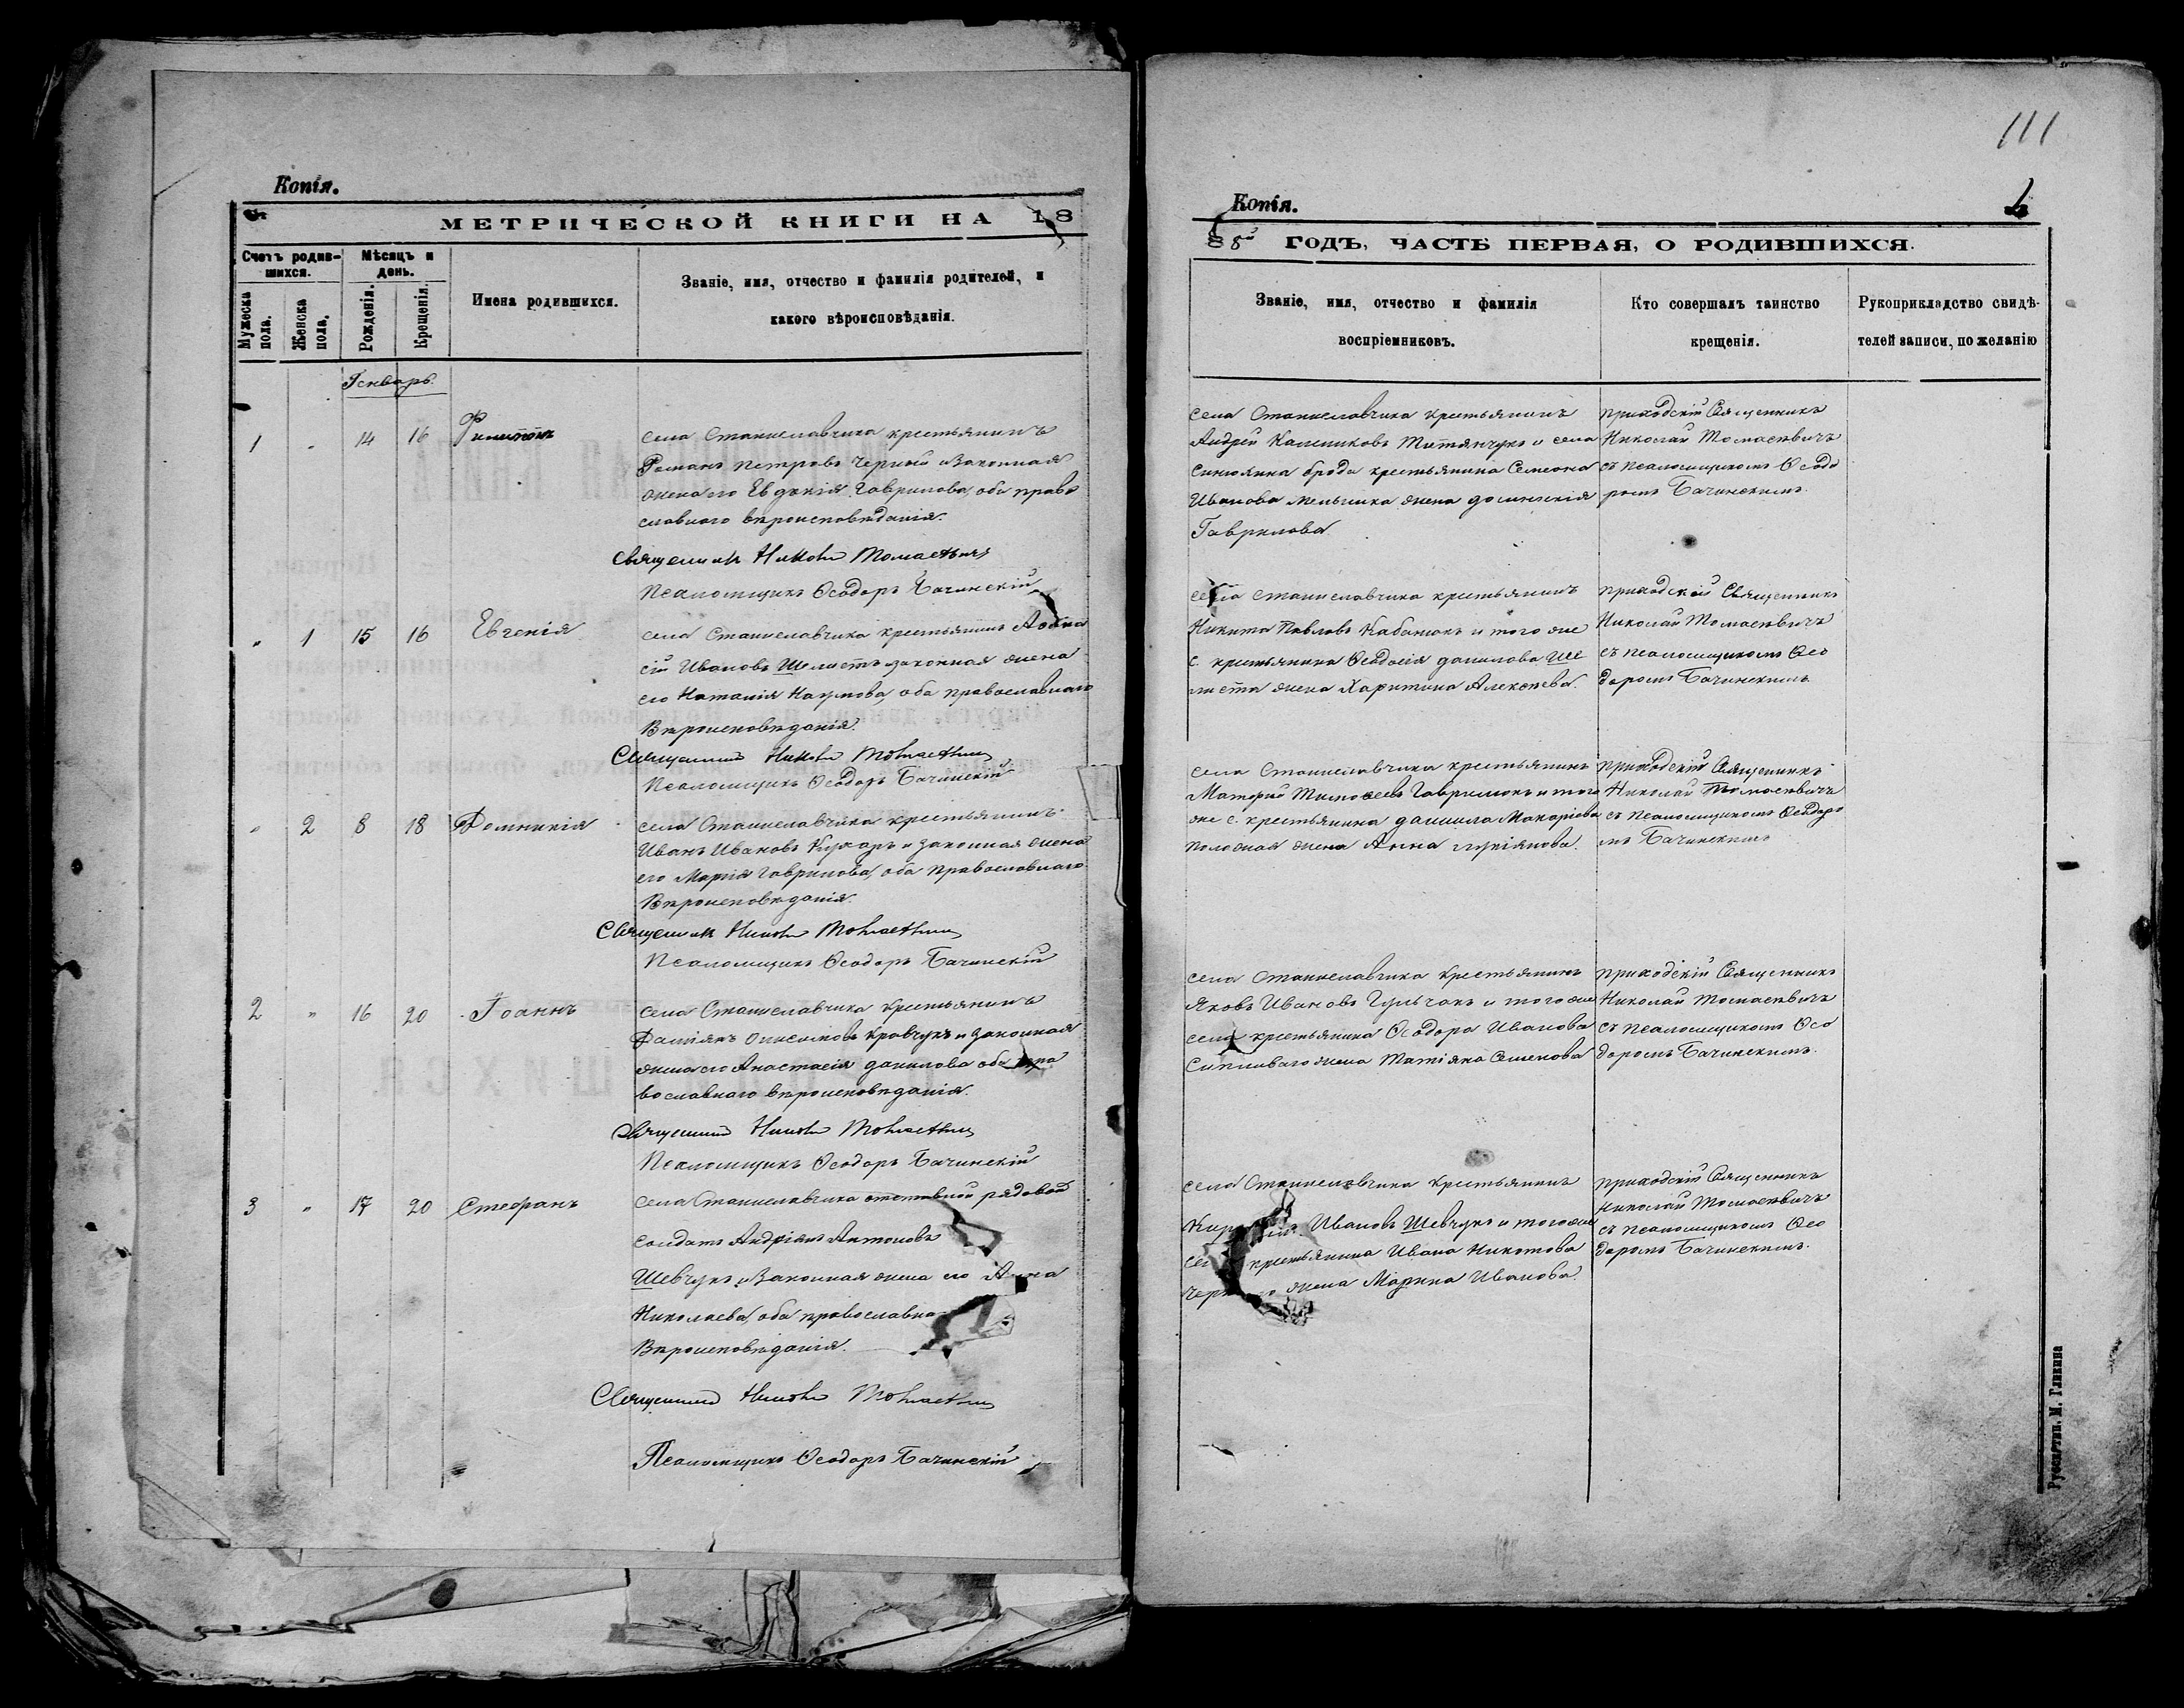 Копія.
МЕТРИЧЕСКОЙ КНИГИ НА 18
Счетъ родив-
шихся.
Мѣсяцъ и
день.
Мужеска
пола.
Женска
пола.
Рожденія.
Крещенія.
Имена родившихся.
Званіе, имя, отчество и фамилія родителей, и
какого вѣроисповѣданія.
Генварь
1 " 14 16
села Станиславчика крестьянинъ
Романъ Петровъ Черный и Законная
жена его Евдокія Гаврилова, оба право
славнаго вѣроисповѣданія.
Священникъ Николай Томасевичъ
Псаломщикъ Ѳеодоръ Бачинскій
" 1 15 16 Евгенія
села Станиславчика крестьянинъ
Ивановъ Шелестъ законная жена
его Наталія Наумова, оба православнаго
Вѣроисповѣданія.
Священникъ Николай Томасевичъ
Псаломщикъ Ѳеодоръ Бачинскій
" 2 8 18 Домникія
села Станиславчика крестьянинъ
Иванъ Ивановъ Кухаръ и законная жена
его Марія Гаврилова, оба православнаго
Вѣроисповѣданія.
Священникъ Николай Томасевичъ
Псаломщикъ Ѳеодоръ Бачинскій
2 " 16 20 Іоаннъ
села Станиславчика крестьянинъ
Даміянъ Кравчукъ и законная
жена его Анастасія Данилова оба пра
вославнаго вѣроисповѣданія.
Священникъ Николай Томасевичъ
Псаломщикъ Ѳеодоръ Бачинскій
3 " 17 20 Стефанъ
села Станиславчика отставной рядовой
солдатъ Андріянъ Антоновъ
Шевчукъ и Законная жена его Анна
Николаева, оба православна
Вѣроисповѣданія.
Священникъ Николай Томасевичъ
Псаломщикъ Ѳеодоръ Бачинскій
111
Копія.
88 ГОДЪ, ЧАСТЬ ПЕРВАЯ, О РОДИВШИХСЯ.
Званіе, имя, отчество и фамилія
воспріемниковъ.
Кто совершалъ таинство
крещенія.
Рукоприкладство свидѣ-
телей записи, по желанію
села Станиславчика крестьянинъ
Андрей Калениковъ Титянчукъ и села
Синюхина брода крестьянина Семеона
Иванова Мельника жена
Гаврилова
приходскій Священникъ
Николай Томасевичъ
съ псаломщикомъ Ѳеодо
ромъ Бачинскимъ.
села Станиславчика крестьянинъ
Никита Павловъ Кабанюкъ и того же
с. крестьянина Ѳеодосія Данилова Ше
листа жена Харитина Алексѣева.
приходской Священникъ
Николай Томасевичъ
съ псаломщикомъ Ѳео
доромъ Бачинскимъ
села Станиславчика крестьянинъ
Тимоѳеевъ Гаврилюкъ и того
же с. крестьянина Даніила Макаріева
жена Анна Лукіянова.
приходскій Священникъ
Николай Томасевичъ
съ псаломщикомъ Ѳеодоро
мъ Бачинскимъ
села Станиславчика крестьянинъ
Яковъ Ивановъ Гульчакъ и того же
села крестьянина Ѳеодора Иванова
Сипливаго жена Татіяна Семенова
приходскій Священникъ
Николай Томасевичъ
съ псаломщикомъ Ѳео
доромъ Бачинскимъ.
села Станиславчика крестьянинъ
Ивановъ Шевчукъ и того же
крестьянина Ивана Никитова
жена Марина Иванова.
приходскій Священникъ
Николай Томасевичъ
съ псаломщикомъ Ѳео
доромъ Бачинскимъ.